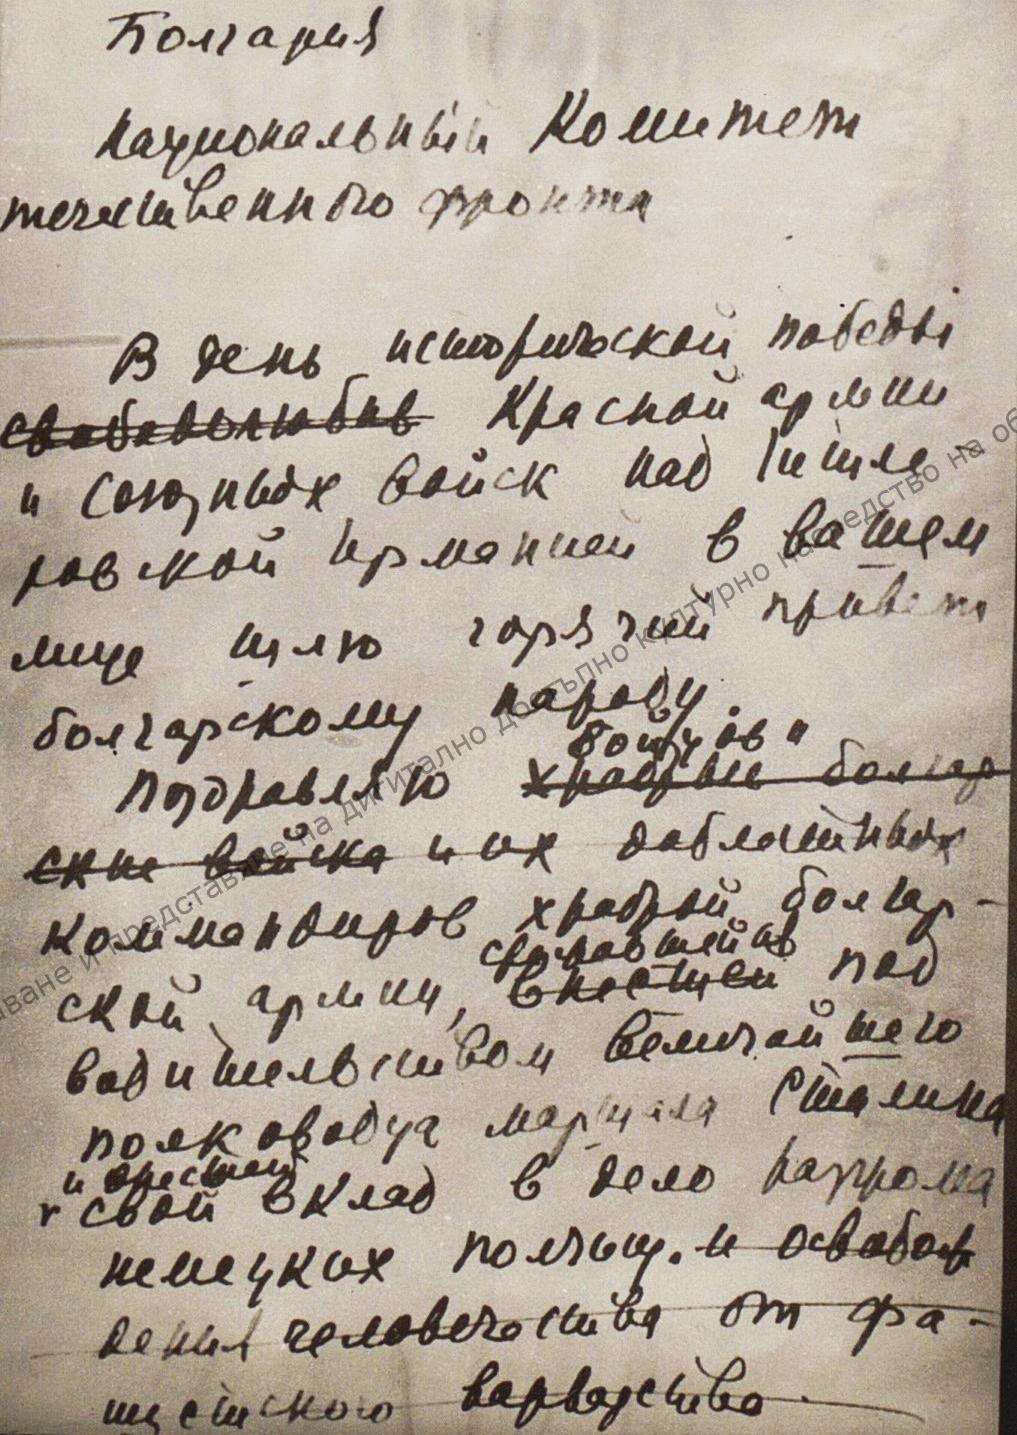 Болгария
Национальный Комитет
течественного фронта
В день исторической победы
свободолюбив Красной армии
и союзных войск над Гитле-
ровской Германией в вашем
лице шлю горячий привет
болгарскому народу.
бойцов и
Поздравляю храбрые болгар
ские войска и их доблестных
командиров храброй болгар-
сражавшейся
ской армии, внесшей под
водительством величайшего
полководца маршала Сталина
и внесшей
свой вклад в дело разгрома
немецких полчищ. и освобож
дения человечества от фа-
шистского варварства